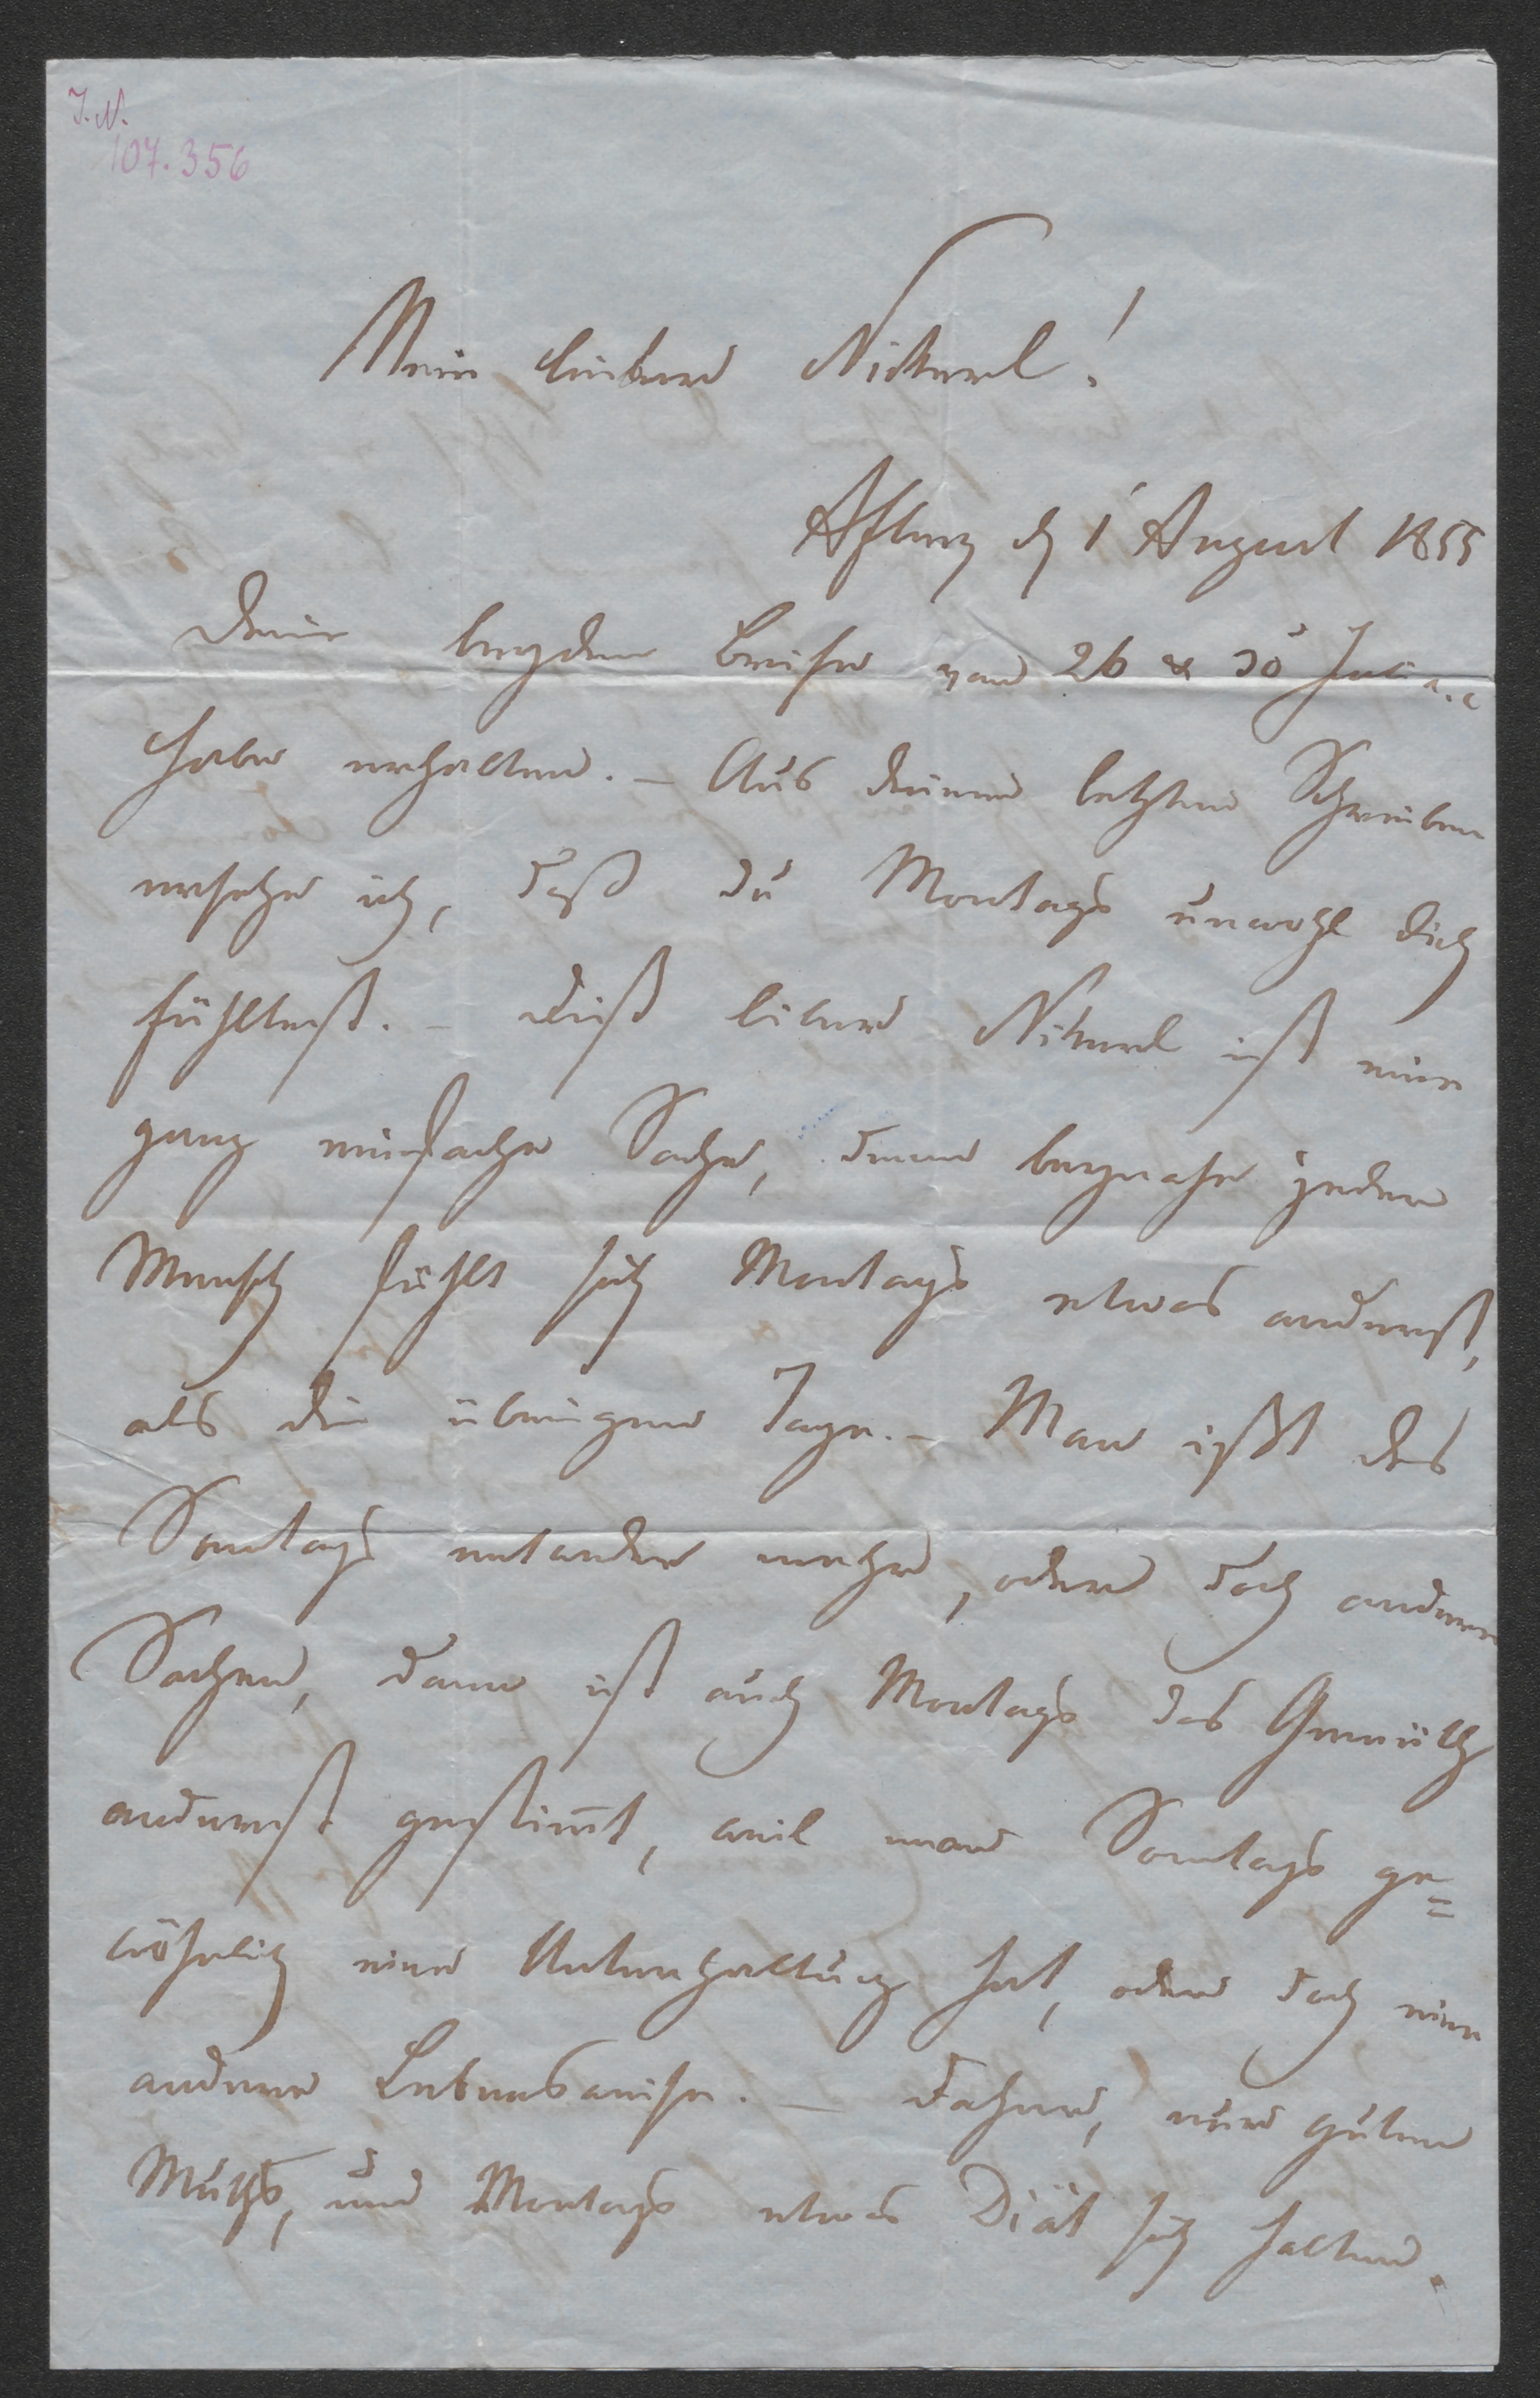 J.N.
107.356
Mein lieber Nickerl!
Aflenz d 1' August 1855
Deine beyden Briefe vom 26 & 30' Juli a.c
habe erhalten. – Aus deinem letzten Schreiben
ersehe ich, daß du Montags unwohl dich
fühltest. – Dieß lieber Nikerl ist eine
ganz einfache Sache, denn beynahe jeder
Mensch fühlt sich Montags etwas anderst,
als die übrigen Tage. – Man ißt des
Sontags entweder mehr, oder doch andere
Sachen, dann ist auch Montags das Gemüth
anderst gestimt, weil man Sontags ge=
wöhnlich eine Unterhaltung hat, oder doch eine
andere Lebensweise. – Daher, nur guten
Muths, und Montags etwas Diät sich halten.